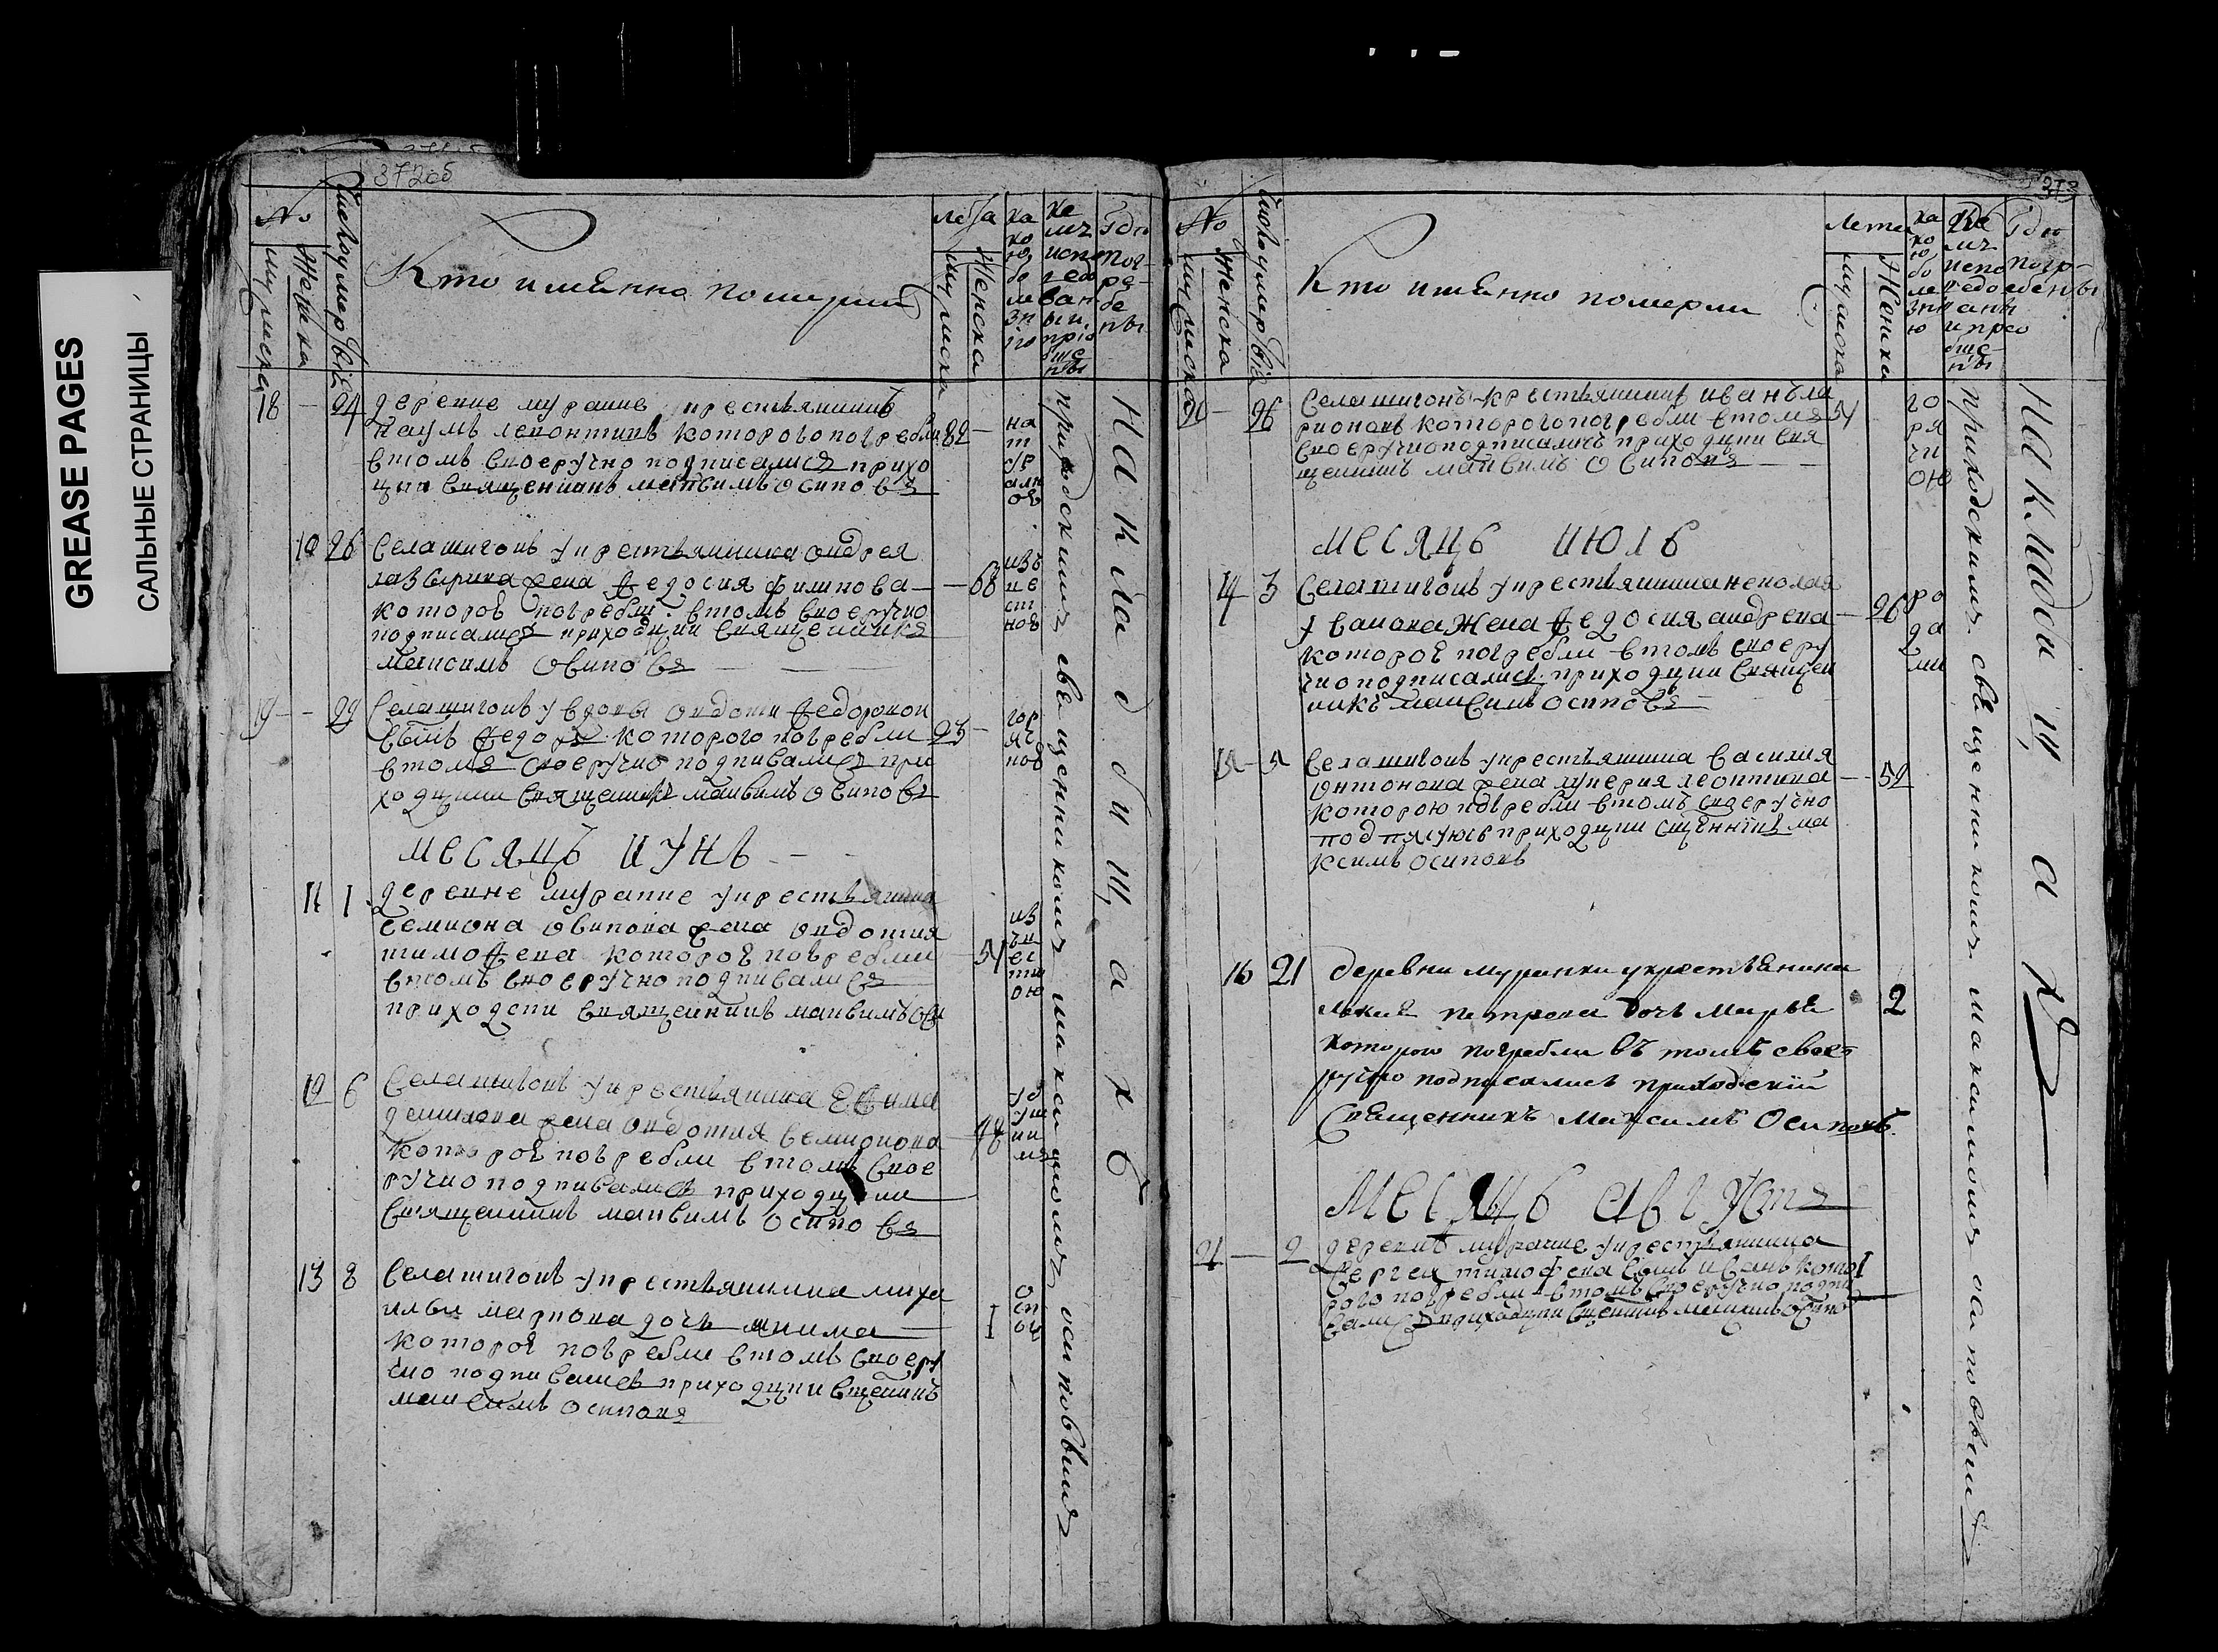 GREASE PAGES
САЛЬНЫЕ СТРАНИЦЫ
372об
№
мужска
женска
Число умертвія
Кто имянно померли
лета
мужска
женска
ка
ко
ю
бо
ле
зн
ію
ке
мъ
испо
ведо
ван
ы и
пріо
бще
ны
где
пог
ре
бе
ны
18 — 24
деревне муранке крестьянинъ
наумъ леонтивъ которого погребли 82 —
втомъ своеручно подписался прихо
цки священникъ максимъ осиповъ
на
т
ур
алн
ою
10 26 села шигонъ у крестьянина андрея
лазырива жена федосия филиповa — 68
которою погребли втомъ своеручно
подписался приходцки священникъ
максимъ осиповъ
19 — 29 села шигонъ у вдовы авдоти федоровои
сынъ федоръ которого погребли 23 —
втомъ своеручно подписался при
ходцки священникъ максимъ осиповъ
гор
яч
кою
месяцъ иунь
11 1 деревне муранке у крестьянина
семиона осипова жена авдотия
тимофева которою погребли — 54
втомъ своеручно подписался
приходски священникъ максимъ оси
12 6 села шигонъ у крестьянина ефима
данилова жена авдотия семионова — 48
которою погребли втомъ свое
ручно подписался приходцки
священникъ максимъ осиповъ
13 8 села шигонъ у крестьянина миха
илы маркова дочь акима — 1
которою погребли втомъ своеру
чно подписался приходцки сщеникъ
максимъ осиповъ
о
сп
ою
приходскимъ священникомъ максимомъ осиповымъ
на кладбищахъ
373
№
мужска
женска
Число умертвія
Кто имянно померли
Лета
мужска
женска
ка
ко
ю
бо
ле
зн
ю
ке
мъ
испо
ведо
ваны
и прео
бще
ны
где
погр
ебены
20 — 26 села шигонъ крестьянинъ иванъ ла
рионовъ которого погребли втомъ 54
своеручно подписались приходцки свя
щенникъ максимъ осиповъ
го
ря
чк
ою
месяцъ июль
14 3 села шигонъ у крестьянина николая
иванова жена федосия андрева — 26
которою погребли втомъ своеру
чно подписался приходцки священ
никъ максимъ осиповъ
ро
да
ми
15 5 села шигонъ у крестьянина василия
антонова жена лукерия леонтива — 52
которою погребли втомъ своеручно
подписуюсь приходцки сщенникъ ма
ксимъ осиповъ
16 21 деревни муранки у крестьянина
петрова дочь Марья 2
которою погребли въ томъ свое
ручно подписались приходскій
Священникъ Максимъ Осиповъ
месяцъ августъ
21 — 2 деревне муранке у крестьянина
сергея тимофева сынъ иванъ кото 1
рого погребли втомъ своеручно подпи
сался приходцки сщеникъ максимъ осипо
приходскимъ священникомъ максимомъ осиповымъ
на кладбищахъ